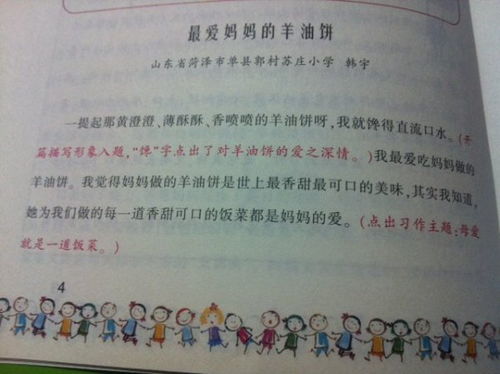 最爱妈妈的羊油饼
山东省菏泽市单县郭村苏庄小学 韩宇
一提起那黄澄澄、薄酥酥、香喷喷的羊油饼呀,我就馋得直流口水。(开
篇描写形象入题,“馋”字点出了对羊油饼的爱之深情。)我最爱吃妈妈做的
羊油饼。我觉得妈妈做的羊油饼是世上最香甜最可口的美味,其实我知道,
她为我们做的每一道香甜可口的饭菜都是妈妈的爱。(点出习作主题:母爱
就是一道饭菜。)
4